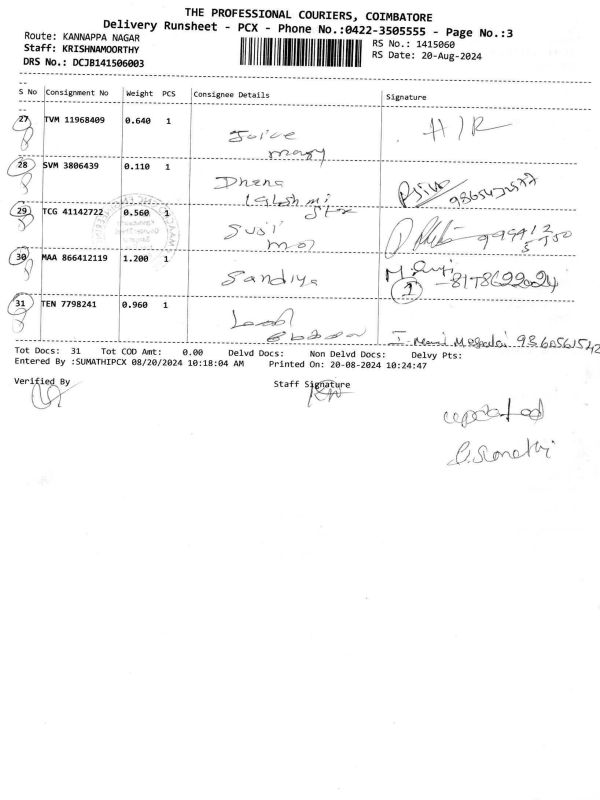 THE PROFESSIONAL COURIERS, COIMBATORE
Delivery Runsheet - PCX - Phone No.:0422-3505555 - Page No.:3
Route: KANNAPPA NAGAR
RS No.: 1415060
Staff: KRISHNAMOORTHY
RS Date: 20-Aug-2024
DRS No.: DCJB141506003
S No Consignment No Weight PCS Consignee Details Signature
27 TVM 11968409 0.640 1
Juice
mary
H/R
28 SVM 3806439 0.110 1
Dhena
29 TCG 41142722 0.560 1
Susil
mol
30 MAA 866412119 1.200 1
Sandiya
31 TEN 7798241 0.960 1
9360561542
Tot Docs: 31 Tot COD Amt: 0.00 Delvd Docs: Non Delvd Docs: Delvy Pts:
Entered By :SUMATHIPCX 08/20/2024 10:18:04 AM Printed On: 20-08-2024 10:24:47
Verified By Staff Signature
updated